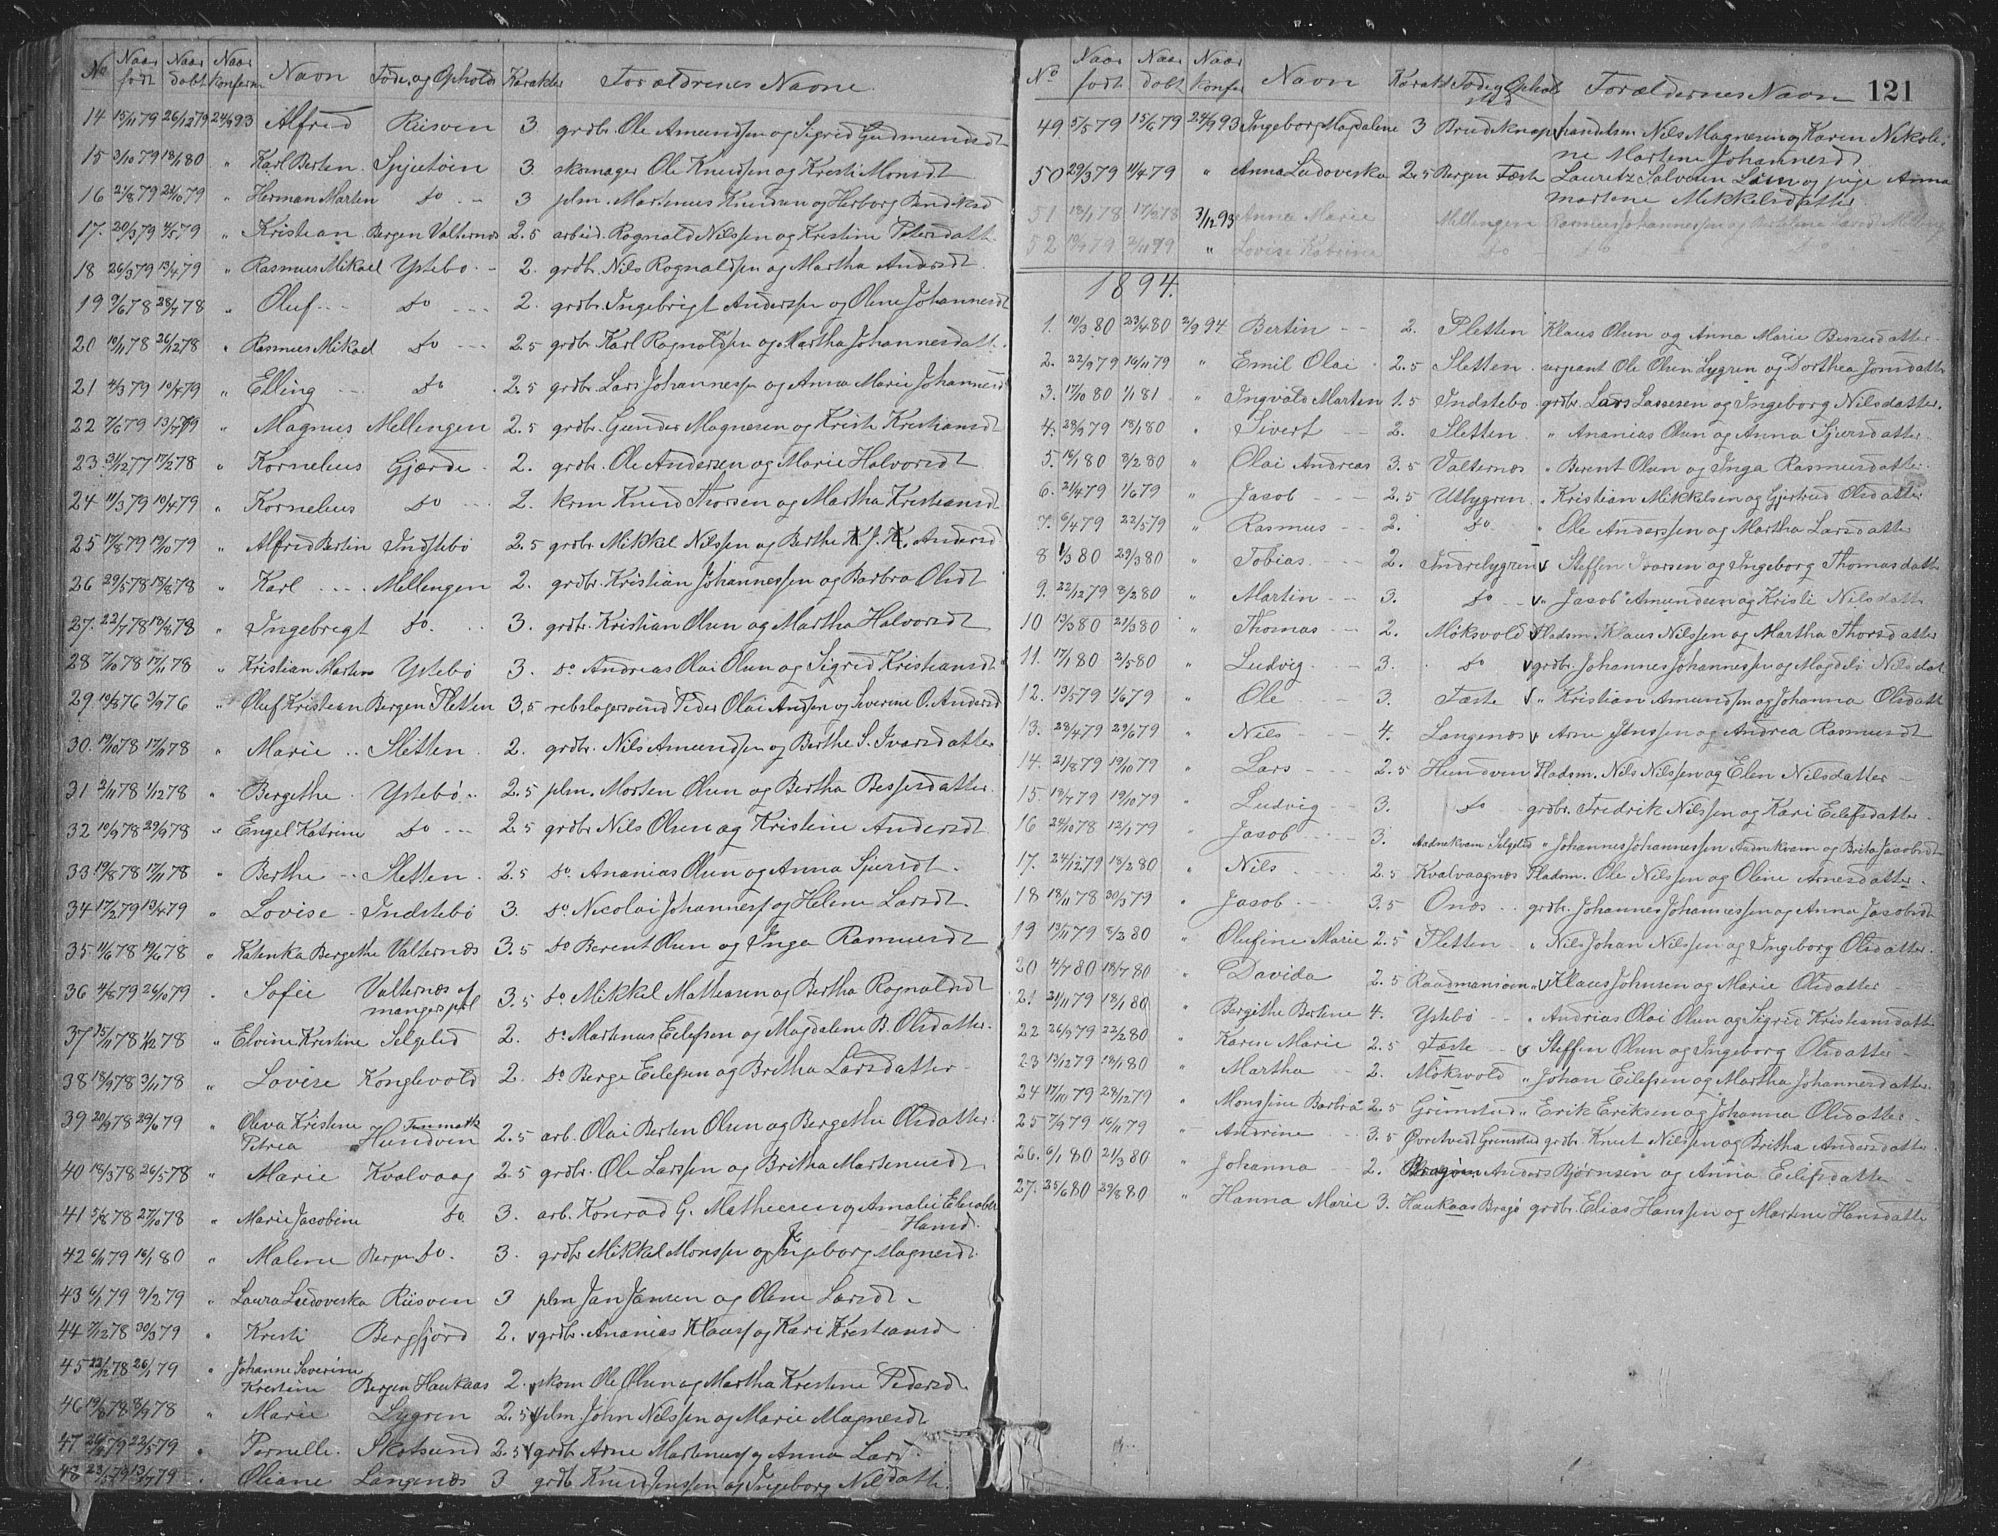 No Naar født Naar døbt Naar konferm Navn Føde og Opholds Karakter Forældrenes Navne.
14 15/11 79 26/12 79 24/9 93 Alfred Risven 3 grdbr. Ole Amundsen og Sigrid Gudmundsdt
15 3/10 79 18/1 80 " Karl Berten 3. skomager Ole Knudsen og Kristi Monsdt
16 21/8 79 24/10 79 " Herman Marten do 3 plm. Martenus Knudsen og Herborg
17. 20/3 79 " Kristian Bergen Valternæs 2.5 arbeid. Rognald Nilssen og Kristine Petersdatt
18 26/3 79 13/4 79 " Rasmus Mikael Ystebø 2. grdbr. Nils Rognaldsen og Martha Andersdt
19 9/6 78 28/7 78 " Oluf do 2. grdbr. Ingebrigt Anderssen og Oline Johannesdt
20 10/11 78 26/12 78 " Rasmus Mikael do 2.5 grdbr. Karl Rognaldsen og Martha Johannesdatt
21 4/3 79 10/4 79 " Elling do 2.5 grdbr. Lars Johannessen og Anna Marie Johannesd
22 7/6 79 13/7 79 " Magnus Mellingen 2.5 grdbr. Gunder Magnesen og Kristi Kristiansdt
23 31/12 77 17/2 78 " Kornelius Gjærde 2. grdbr. Ole Andersen og Marie Halvorsdt
24 11/3 79 10/4 79 " Kornelius do 2. krm Knud Thorsen og Martha Kristiansdt
25 17/8 79 19/10 79 " Alfred Bertin Indstebø 2.5 grdbr. Mikkel Nilssen og Berthe J. Andersd
26 29/5 78 18/8 78 " Karl Mellengen 2. grdbr. Kristian Johannessen og Barbro Olsdt
27. 22/7 78 18/8 78 " Ingebrigt do. 3. grdbr. Kristian Olsen og Martha Halvorsdt
28 7/10 78 17/11 78 " Kristian Marten Ystebø 3. do Andreas Olai Olsen og Sigrid Kristiansdt
29 10/8 76 3/9 76 " Oluf Kristian Bergen Sletten 3,5 rebslagersvend Peder Olai Andsen og Severine O. Andersd
30. 19/10 78 17/11 78 " Marie Sletten 2. grdbr. Nils Amundsen og Berthe S. Ivarsdatter
31 2/11 78 1/12 78 " Bergethe Ystebø 2.5 plm. Morten Olsen og Bertha Bessesdatter
32 10/9 78 29/9 78 " Engel Katrine do 2.5 grdbr Nils Olsen og Kristine Andersdt
33 19/8 78 17/11 78 " Berthe Sletten 2.5 do. Ananias Olsen og Anna Sjursdt
34 17/2 79 13/4 79 " Lovise Indstebø 3. do Nicolai Johannesse og Helene Larsdt.
35 11/6 78 19/6 78 " Katenka Bergethe Valternæs 3.5 do Berent Olsen og Inga Rasmusdt
36 4/8 79 26/10 79 Sofie Valternæs af mangerspl 3.5 do Mikkel Mathiasen og Bertha Rognaldsdt
37 15/11 78 1/12 78 " Elvine Kristine Selgeld 2. do Martenus Eilefsen og Magdalene B. Olsdatter
38 18/9 78 3/11 78 " Lovise Konglevold 2. do Berge Eilefsen og Britha Larsdatter
39 20/7 78 29/6 79 Oleva Kristine Petrea Finmark Hundven 2.5 arb. Olai Berten Olsen og Bergethe Olsdatter
40 18/3 78 26/5 78 " Marie Kvalvaag 2.5 grdbr. Ole Larssen og Britha Martenusdt
41 5/8 78 27/10 78 " Marie Jacobine do. 3. arb. Konrad G. Mathiesen og Amalie Elisabet Hansd.
42 6/11 79 16/1 80 " Malene Bergen do. 3. grdbr Mikkel Monssen og Ingeborg Magnesdt
43 6/1 79 9/2 79 " Laura Ludoveska Risven 3 plm Jan Jansen og Oline Larsdt
44 7/12 78 30/3 79 " Kristi Bergfjord 2. v grdbr. Ananias Klauss og Kari Kristiansd
45 22/12 78 26/1 79 " Johanne Severine Kristine Bergen Haukaas 2. skom Ole Olsen og Martha Kristine Pedersdt
46 19/8 78 8/9 78 " Marie Lygren 2.5 plm John Nilssen og Marie Magnesdt
47 79 22/5 79 Pernelle. Skotsund 2.5 grdbr Arne Martinuss og Anna Lars
48 23/5 79 13/7 79 Oliane Langenæs 3 grdbr Knud Jenssen og Ingeborg Nilsdatte
No Naar født Naar døbt Naar konfer Navn Karakt Føde og Ophold sted Forældernes Navn 121
49 5/5 79 15/6 79 24/9 93 Ingeborg Magdalene 3 Brudeknap handelsm. Nils Magnesen og Karen Nikoli-
ne Martine Johannesdt
50 29/3 79 11/4 79 " Anna Ludoveska 2.5 Bergen Fæste Lauritz og pige Anna
Martene Mikkelsdatter
51 13/1 78 17/2 78 3/12 93 Anna Marie Mellingen Rasmus Johannessen og
52 79 2/11 79 " Lovise Katrine do do
1894.
1. 10/3 80 23/4 80 2/9 94 Bertin 2. Sletten Klaus Olsen og Anna Marie Bessesdatter
2. 22/9 79 16/11 79 " Emil Olai 2.5 Sletten sergeant Ole Olsen Lygren og Dorthea Jonsdatte
3. 17/10 80 1/1 81 " Ingvald Marten 1.5 Indstebø grdbr. Lars Lassesen og Ingeborg Nilsdatter.
4. 28/9 79 18/1 80 " Sivert 2. Sletten " Ananias Olsen og Anna Sjursdatter
5. 16/1 80 8/2 80 " Olai Andreas 3.5 Valternæs " Berent Olsen og Inga Rasmusdatter
6. 21/4 79 1/6 79 " Jacob 2.5 Utlygren " Kristian Mikkelsen og Gjertrud Olsdatter
7. 6/4 79 22/5 79 " Rasmus 2. do " Ole Anderssen og Martha Larsdatter
8 1/3 80 29/3 80 " Tobias 2. Indrelygren v Steffen Ivarsen og Ingeborg Thomasdatt
9. 22/12 79 8/2 80 " Martin 3. do v " Jacob Amundsen og Kristi Nilsdatt
10 13/3 80 21/3 80 " Thomas 2. Møksvold Pladsm. Klaus Nilssen og Martha Thorsdatter
11. 17/1 80 2/5 80 " Ludvig 3. do v grdbr. Johannes Johannessen og Magdele Nilsdat
12. 13/5 79 1/6 79 " Ole 3. Fæste v " Kristian Amundsen og Johanna Olsdatt
13. 28/4 79 29/6 79 " Nils 4. Langenæs v Arne Jenssen og Andrea Rasmusdt
14. 21/8 79 19/10 79 " Lars 2.5 Hundven Pladsm. Nils Nilssen og Elen Nilsdatter
15. 19/7 79 19/10 79 " Ludvig 3. do grdbr. Fredrik Nilssen og Kari Eilefsdatter
16 24/10 78 12/1 79 " Jacob 3. Aadnekvam Selgeld " Johannes Johannessen Aadnekvam og Brita Jacobsdt
17. 24/12 79 18/2 80 " Nils 2.5 Kvalvaagnæs Pladsm. Ole Nilssen og Oline Arnesdatter
18 18/11 78 30/3 79 " Jacob 3.5 Onos grdbr. Johannes Johannessen og Anna Jacobsdt
19 13/11 79 8/2 80 " Olufine Marie 2.5 Sletten " Nils Johan Nilssen og Ingeborg Olsdatter
20 4/7 80 18/7 80 " Davida 2.5 Raadmansøen " v Klaus Johnsen og Marie Olsdatter
21. 21/11 79 18/1 80 " Bergithe Bertine 4. Ystebø " Andrias Olai Olsen og Sigrid Kristiansdatter
22 26/9 79 22/2 80 " Karen Marie 2.5 Fæste v Steffen Olsen og Ingeborg Olsdatter
23 13/12 79 18/1 80 " Martha 2. Møksvold " Johan Eilefsen og Martha Johannesdatter
24 17/10 79 28/12 79 " Monssine Barbra 2.5 Grimstad " Erik Eriksen og Johanna Olsdatter
25 7/9 79 16/11 79 " Andrine 3.5 Øvretvedt Grimstad grdbr. Knut Nilssen og Britha Andersdatter
26. 6/1 80 21/3 80 " Johanna 2. Bragøen Anders Bjørnsen og Anna Eilefsdatter
27. 25/6 80 29/8 80 " Hanna Marie 3. Haukaas Bragø grdbr. Elias Hanssen og Martine Hansdatte